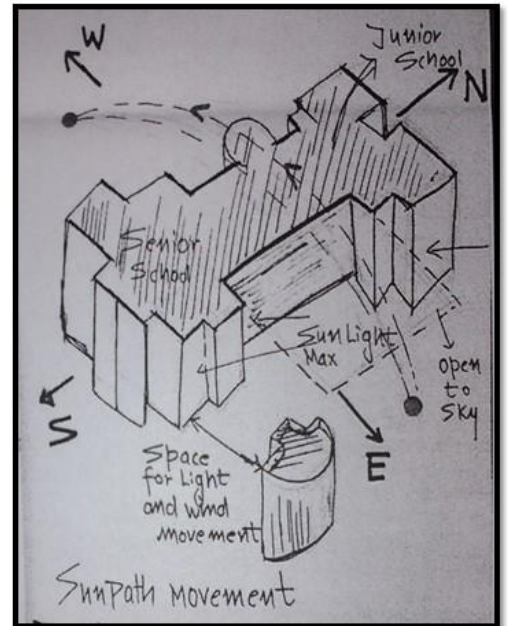 W
Junior
School
N
Senior
School
SunLight
Max
open
to
Sky
S
E
Space
for Light
and wind
movement
SunPath movement